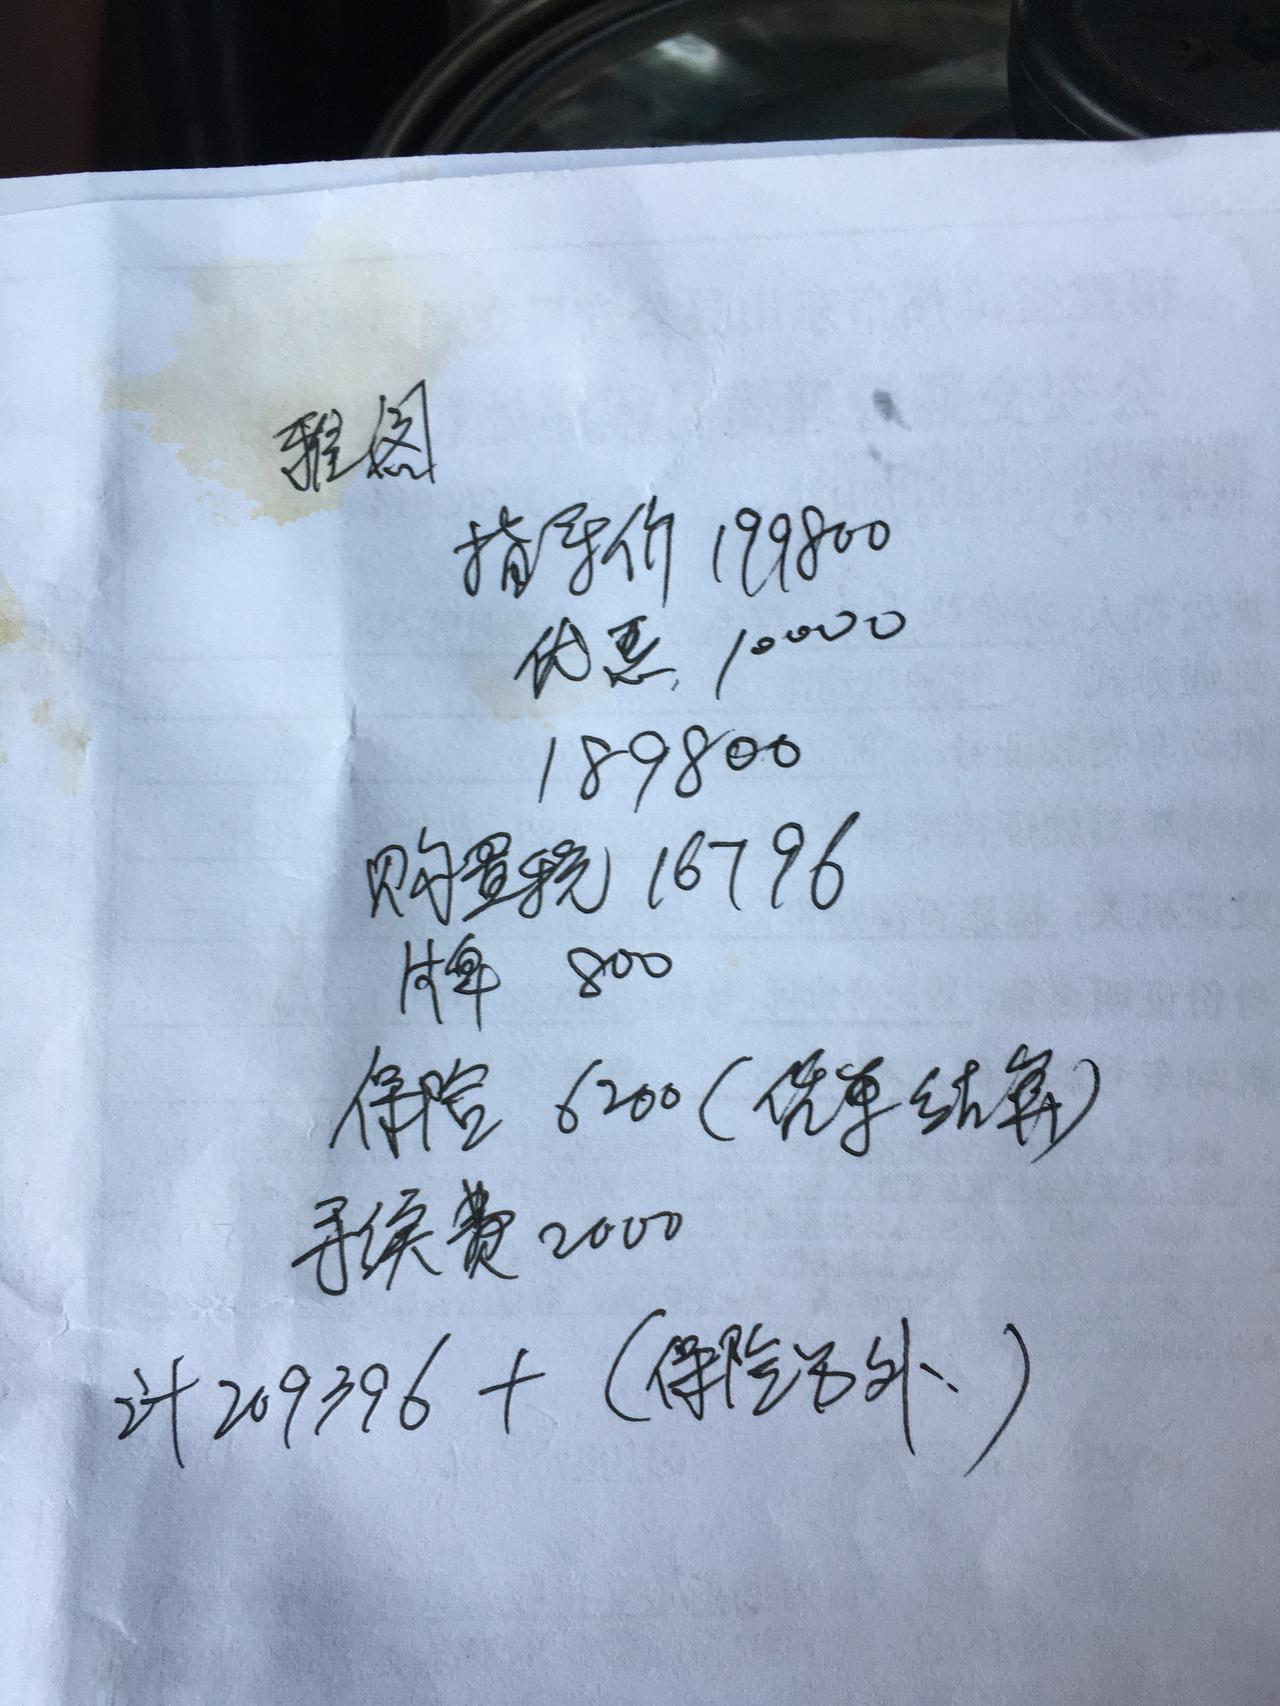 雅图
指导价 199800
优惠 10000
189800
购置税 16796
牌 800
保险 6200(凭单结算)
手续费 2000
计 209396 + (保险另外、)